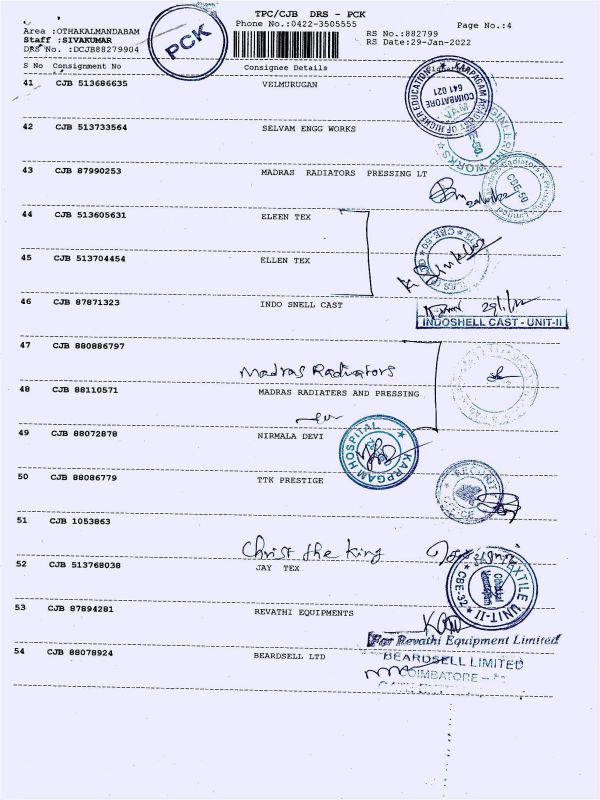 TPC/CJB DRS - PCK
Area :OTHAKALMANDABAM
Phone No.:0422-3505555
Page No.:4
Staff :SIVAKUMAR
RS No.:882799
DRS No. :DCJB88279904
RS Date:29-Jan-2022
PCK
S No Consignment No Consignee Details
41 CJB 513686635 VELMURUGAN
KARPAGAM ACADEMY OF HIGHER EDUCATION
COIMBATORE
641 021
42 CJB 513733564 SELVAM ENGG WORKS
43 CJB 87990253 MADRAS RADIATORS PRESSING LT
CBE-50
44 CJB 513605631 ELEEN TEX
45 CJB 513704454 ELLEN TEX
46 CJB 87871323 INDO SNELL CAST
29/1/22
INDOSHELL CAST - UNIT-II
47 CJB 880886797
Madras Radiators
48 CJB 88110571 MADRAS RADIATERS AND PRESSING
49 CJB 88072878 NIRMALA DEVI
KARPGAM HOSPITAL
50 CJB 88086779 TTK PRESTIGE
51 CJB 1053863
Christ the King
52 CJB 513768038 JAY TEX
TEXTILE UNIT-II
53 CJB 87894281 REVATHI EQUIPMENTS
For Revathi Equipment Limited
54 CJB 88078924 BEARDSELL LTD
BEARDSELL LIMITED
COIMBATORE